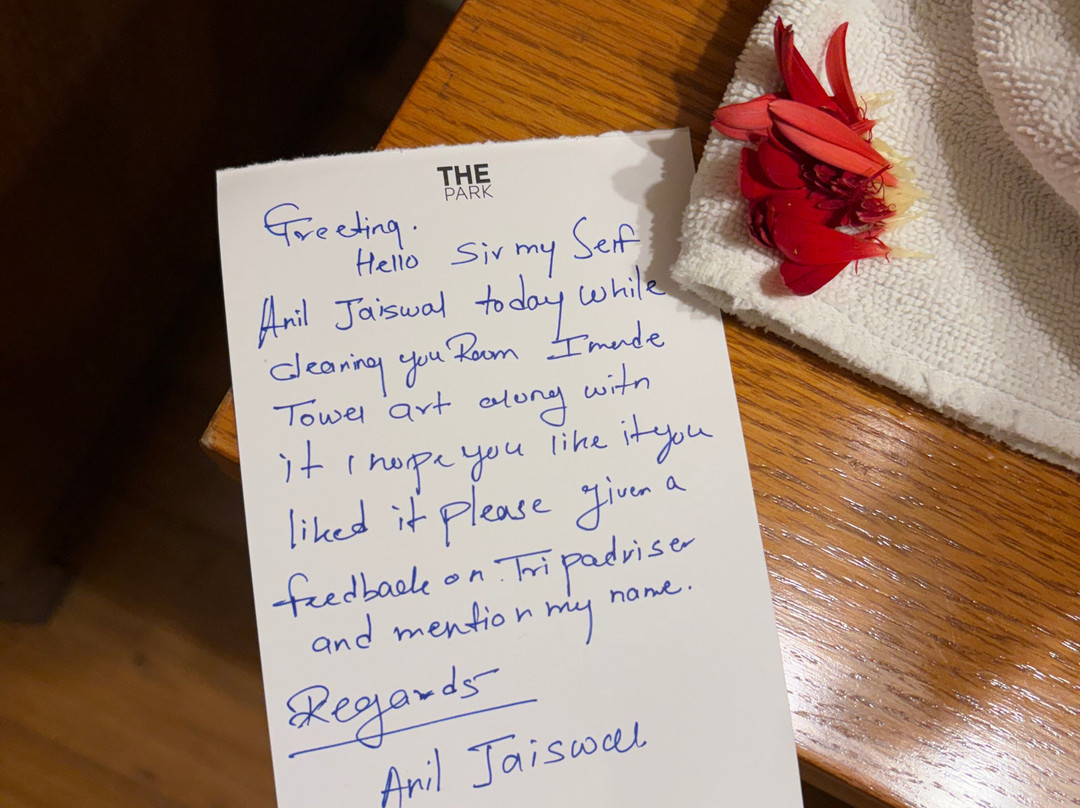 THE
PARK
Greeting.
Hello Sir my Serf
Anil Jaiswal today while
cleaning you Room I made
Towel art along with
it I hope you like it you
liked it please given a
feedback on Tripadviser
and mention my name.
Regards
Anil Jaiswal